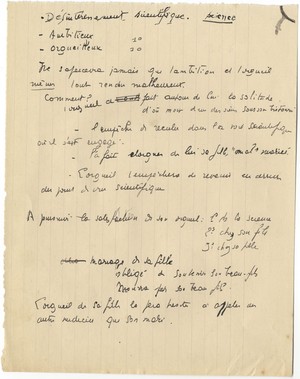 - Désintéressement scientifique. science
- Ambitieux 10
- orgueilleux 20
Ne s'apercevra jamais que l'ambition et l'orgueil
l'ont rendu malheureux.
Comment?
L'orgueil a fait autour de lui la solitude
d'où mon dessin
- L'empêche de reculer dans la voie scientifique
où il s'est engagé.
- L'a fait éloigner de lui sa fille "mal" mariée
- L'orgueil l'empêchera de revenir en arrière
du point de vue scientifique
A poursuivi la satisfaction de son orgueil: 1° ds la science
2° chez son fils
3° chez sa fille
mariage de sa fille
obligé de soutenir son beau-fils
Mourra par son beau-fils
L'orgueil de sa fille la fera hésiter à appeler un
autre médecin que son mari.